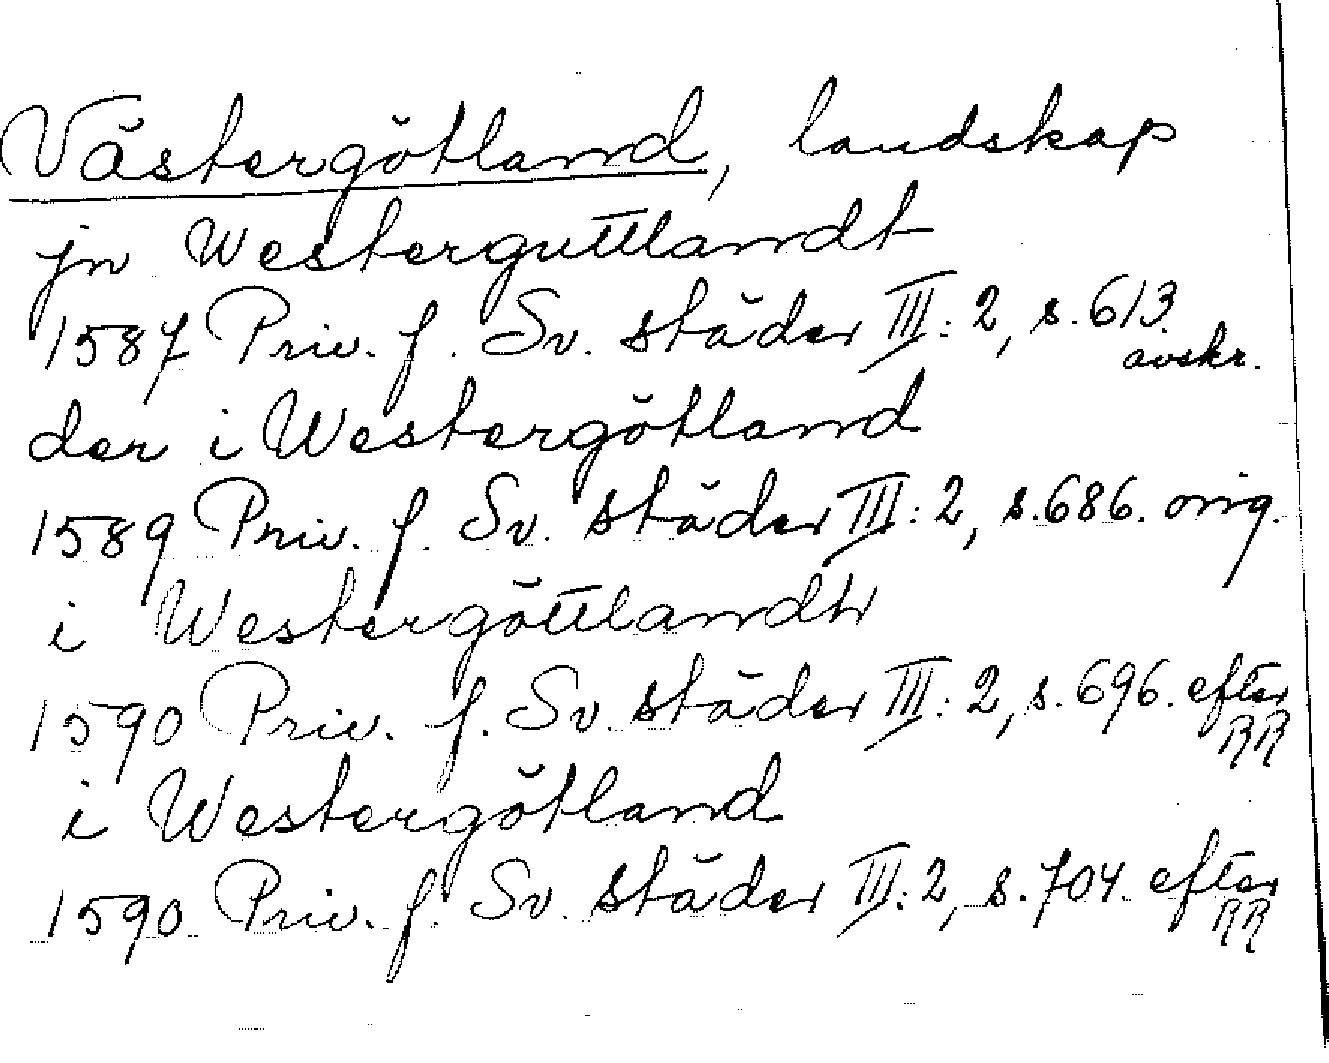 Västergötland, landskap
jn Westerguttlandt
1587 Priv. f. Sv. städer III: 2, s. 613. avskr.
der i Westergötland
1589 Priv. f. Sv. städer III: 2, s. 686. orig.
i Westergöttlandh
1590 Priv. f. Sv. städer III: 2, s. 696. efter RR
i Westergötland
1590 Priv. f. Sv. städer III: 2, s. 704. efter RR